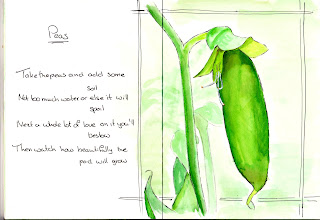 Peas
Take the peas and add some
soil
Not too much water or else it will
spoil
Next a whole lot of love on it you'll
bestow
Then watch how beautifully the
pod will grow